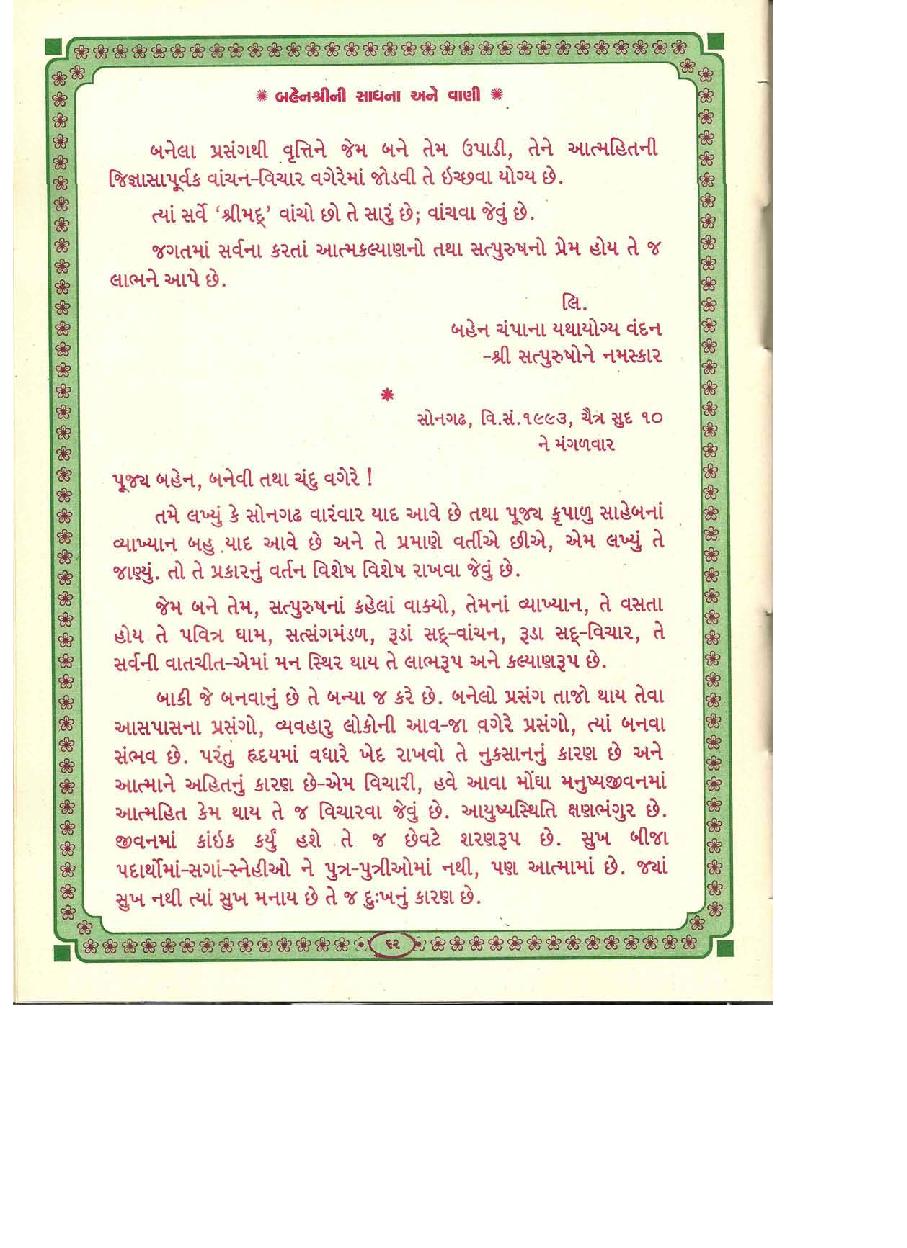 ❋ બહેનશ્રીની સાધના અને વાણી ❋
બનેલા પ્રસંગથી વૃત્તિને જેમ બને તેમ ઉપાડી, તેને આત્મહિતની
જિજ્ઞાસાપૂર્વક વાંચન-વિચાર વગેરેમાં જોડવી તે ઇચ્છવા યોગ્ય છે.
ત્યાં સર્વે ‘શ્રીમદ્’ વાંચો છો તે સારું છે; વાંચવા જેવું છે.
જગતમાં સર્વના કરતાં આત્મકલ્યાણનો તથા સત્પુરુષનો પ્રેમ હોય તે જ
લાભને આપે છે.
લિ.
બહેન ચંપાના યથાયોગ્ય વંદન
-શ્રી સત્પુરુષોને નમસ્કાર
❋
સોનગઢ, વિ.સં.૧૯૯૩, ચૈત્ર સુદ ૧૦
ને મંગળવાર
પૂજ્ય બહેન, બનેવી તથા ચંદુ વગેરે !
તમે લખ્યું કે સોનગઢ વારંવાર યાદ આવે છે તથા પૂજ્ય કૃપાળુ સાહેબનાં
વ્યાખ્યાન બહુ યાદ આવે છે અને તે પ્રમાણે વર્તીએ છીએ, એમ લખ્યું તે
જાણ્યું. તો તે પ્રકારનું વર્તન વિશેષ વિશેષ રાખવા જેવું છે.
જેમ બને તેમ, સત્પુરુષનાં કહેલાં વાક્યો, તેમનાં વ્યાખ્યાન, તે વસતા
હોય તે પવિત્ર ધામ, સત્સંગમંડળ, રૂડાં સદ્-વાંચન, રૂડા સદ્-વિચાર, તે
સર્વની વાતચીત-એમાં મન સ્થિર થાય તે લાભરૂપ અને કલ્યાણરૂપ છે.
બાકી જે બનવાનું છે તે બન્યા જ કરે છે. બનેલો પ્રસંગ તાજો થાય તેવા
આસપાસના પ્રસંગો, વ્યવહારુ લોકોની આવ-જા વગેરે પ્રસંગો, ત્યાં બનવા
સંભવ છે. પરંતુ હૃદયમાં વધારે ખેદ રાખવો તે નુકસાનનું કારણ છે અને
આત્માને અહિતનું કારણ છે-એમ વિચારી, હવે આવા મોંઘા મનુષ્યજીવનમાં
આત્મહિત કેમ થાય તે જ વિચારવા જેવું છે. આયુષ્યસ્થિતિ ક્ષણભંગુર છે.
જીવનમાં કાંઇક કર્યું હશે તે જ છેવટે શરણરૂપ છે. સુખ બીજા
પદાર્થોમાં-સગાં-સ્નેહીઓ ને પુત્ર-પુત્રીઓમાં નથી, પણ આત્મામાં છે. જ્યાં
સુખ નથી ત્યાં સુખ મનાય છે તે જ દુઃખનું કારણ છે.
૬૨